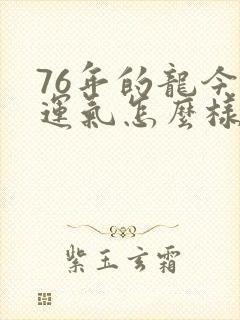 76年的龍今
運氣怎麼樣
紫玉玄霜